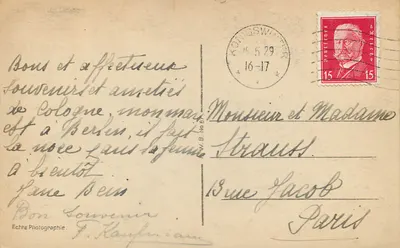 Bons et affectueux
souvenirs et amitiés
de Cologne, mon mari
est à Berlin, il fait
la noce sans sa femme
à bientôt
Bon Souvenir
F. Kaufmann
Echte Photographie
KÖNIGSWINTER
5.29
16-17
15 15
Monsieur et Madame
Strauss
Rue Jacob
Paris